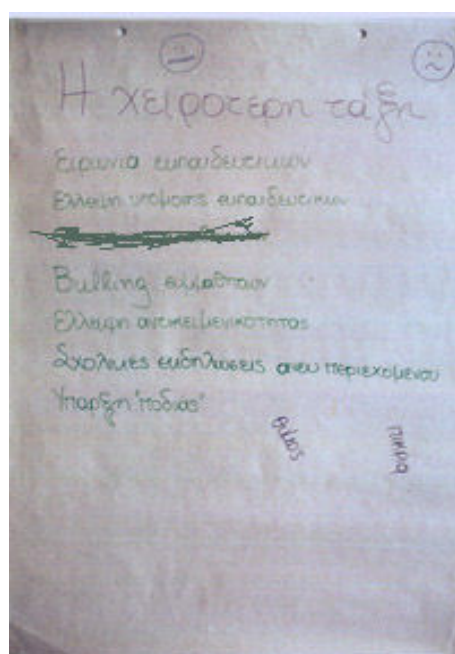 Η χειρότερη τάξη
Ειρωνία εκπαιδευτικών
Έλλειψη υπομονής εκπαιδευτικών
Bulling συμμαθητών
Έλλειψη αντικειμενικότητας
Σχολικές εκδηλώσεις άνευ περιεχομένου
Ύπαρξη "ποδιάς"
θυμός
πίκρα